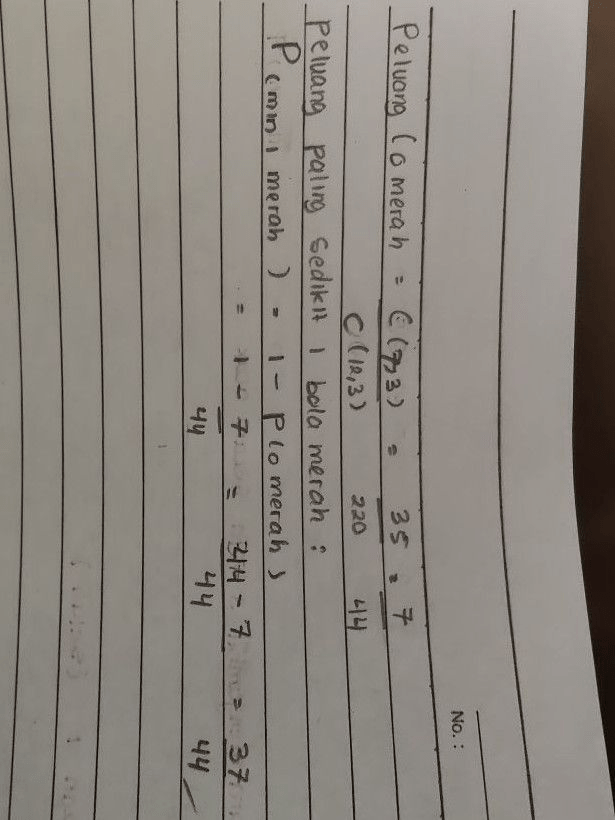 No. :
Peluang (0 merah = C(7,3) = 35 = 7
C(12,3) 220 44
peluang paling sedikit 1 bola merah :
P(min 1 merah) = 1 - P(0 merah)
= 1 - 7 = 44 - 7 = 37
44 44 44